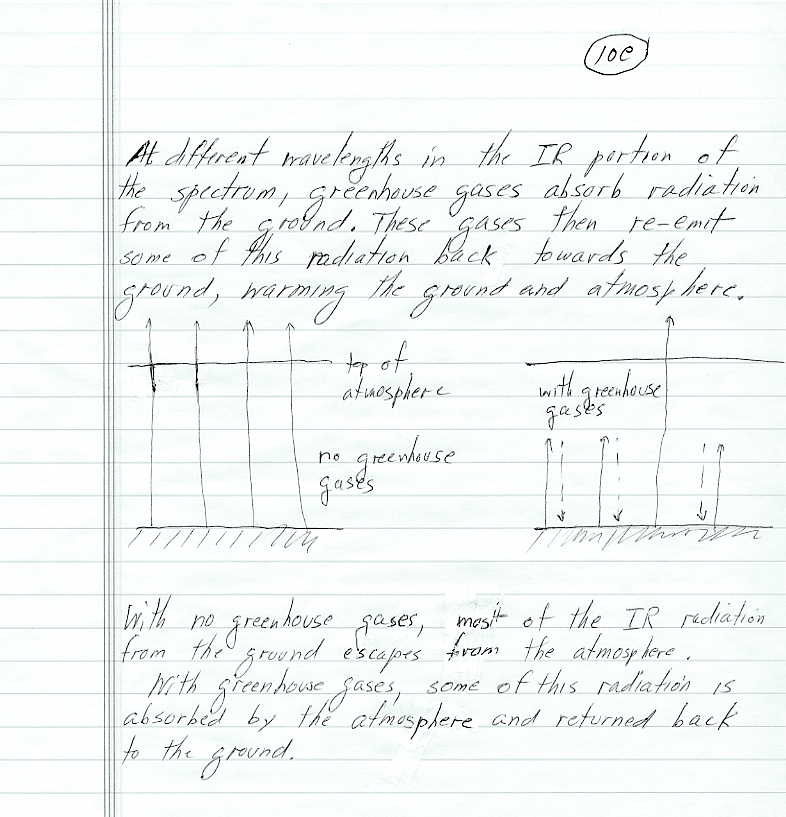 10e
At different wavelengths in the IR portion of
the spectrum, greenhouse gases absorb radiation
from the ground. These gases then re-emit
some of this radiation back towards the
ground, warming the ground and atmosphere.
top of
atmosphere
no greenhouse
gases
with greenhouse
gases
With no greenhouse gases, most of the IR radiation
from the ground escapes from the atmosphere.
With greenhouse gases, some of this radiation is
absorbed by the atmosphere and returned back
to the ground.